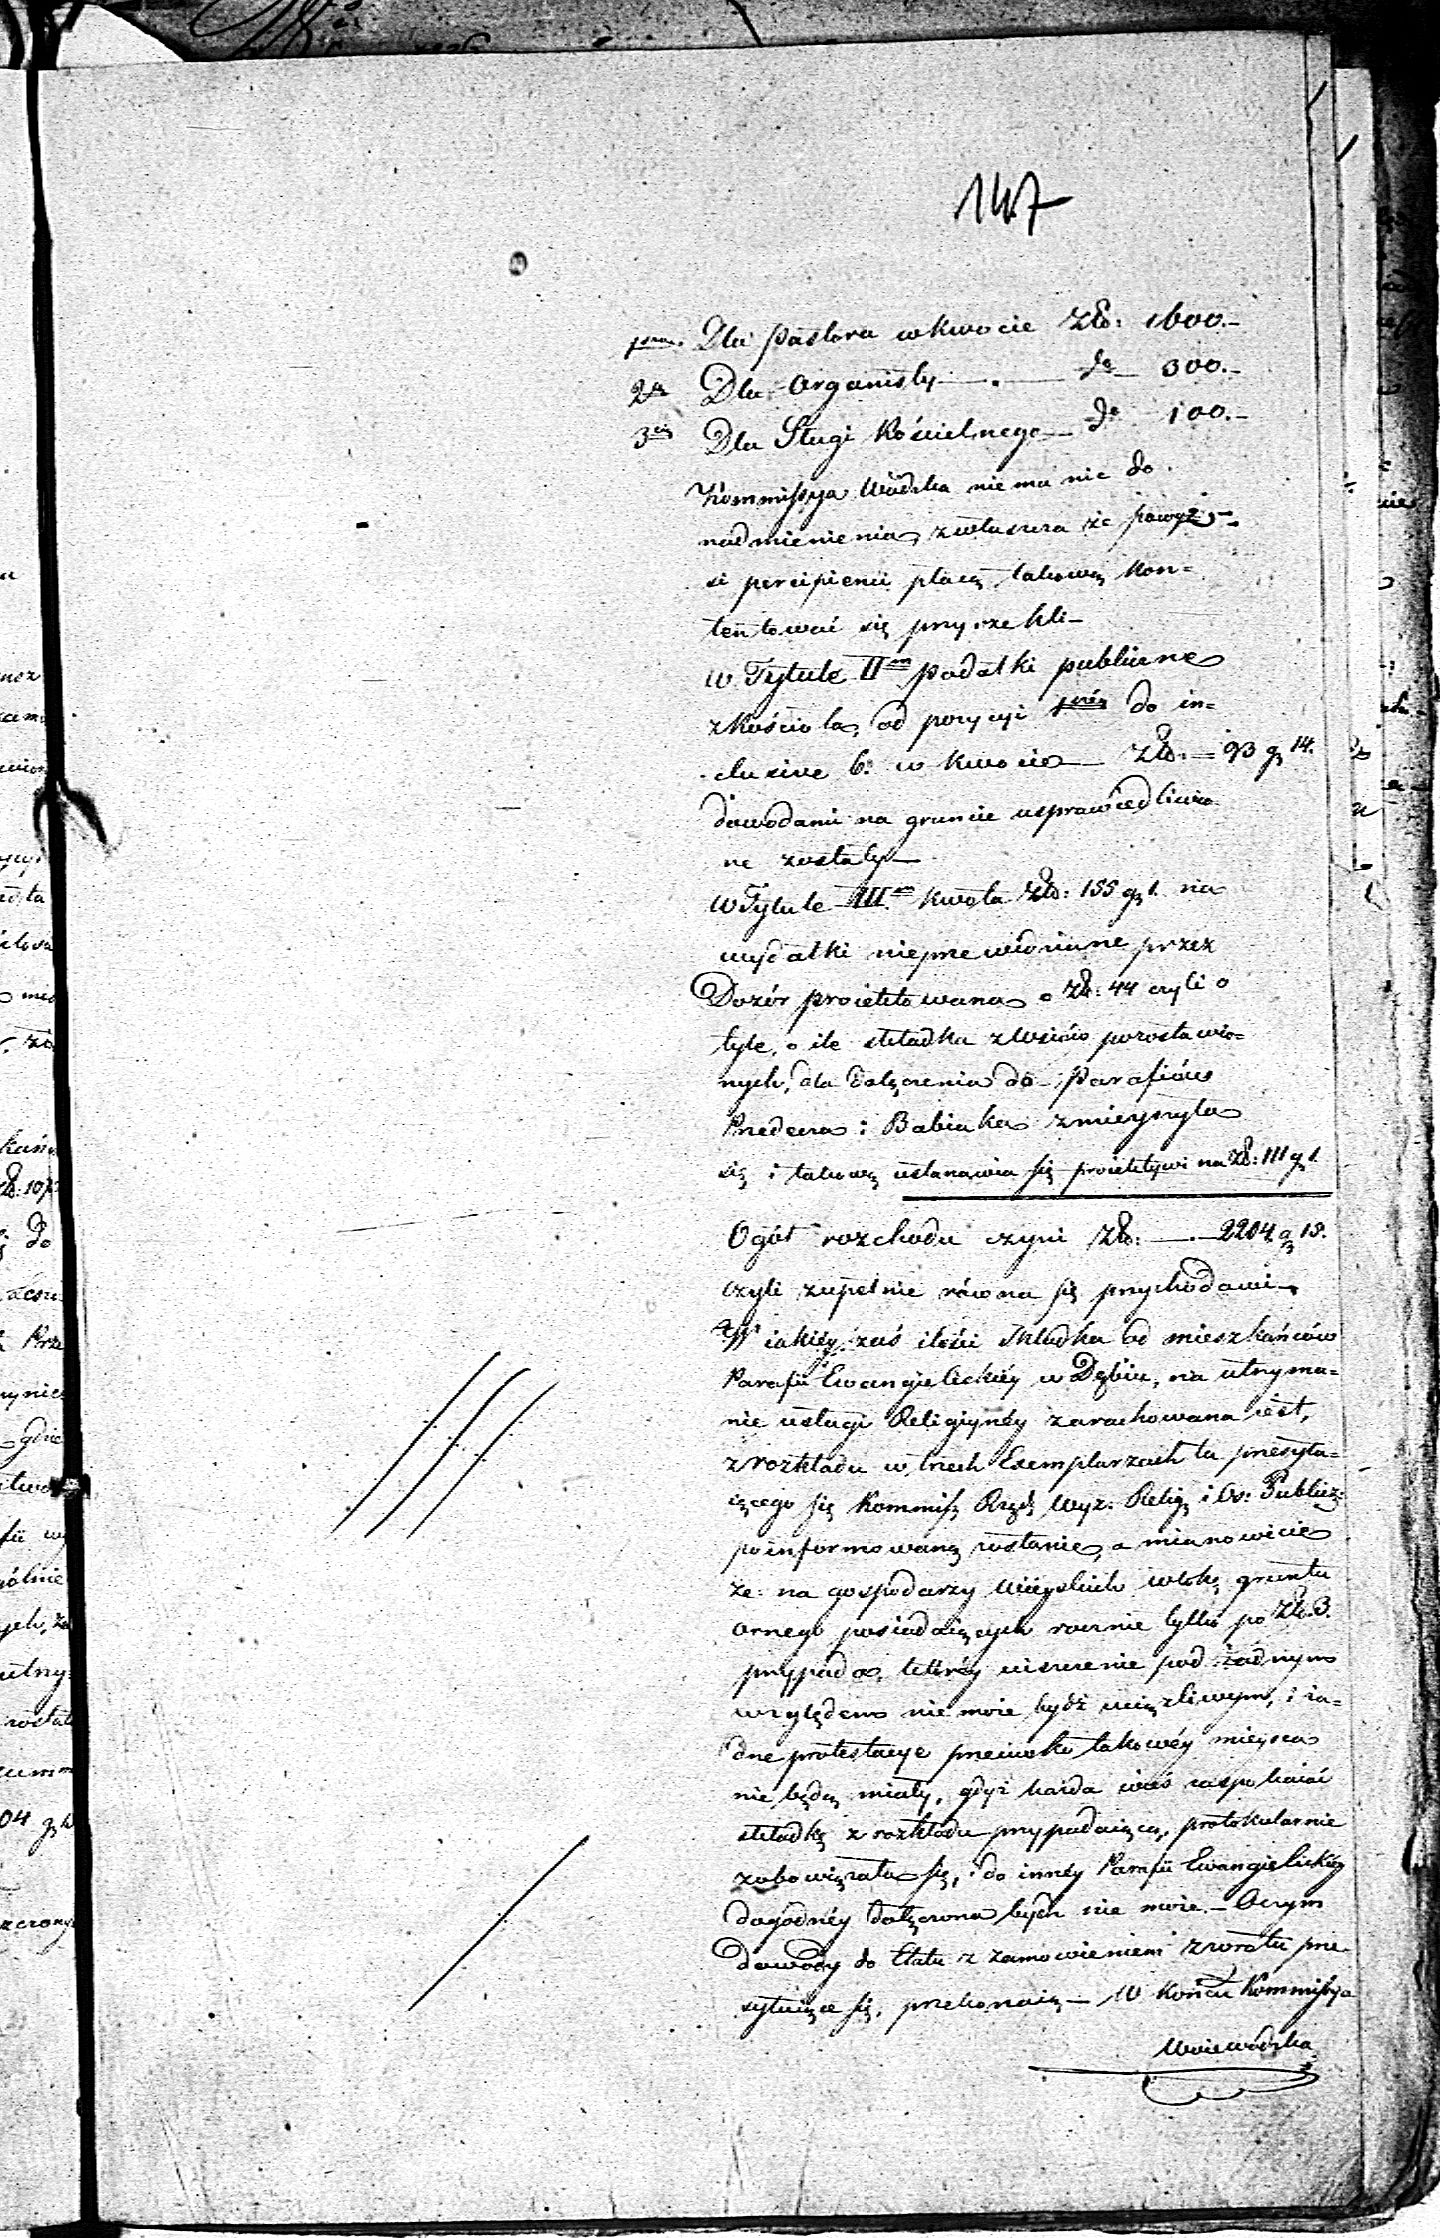 147
1mo. Dla Pastora w kwocie Złt: 1600.-
2do Dla Organisty — . — do — 300.-
3cio Dla Sługi Kościelnego — do 100.-
Kommissya Wdzka nie ma nic do
nadmienienia, zwłaszcza że powyż-
si percipienci płacą takową kon=
tentować się przyrzekli —
w Tytule IIm podatki publiczne
z kościoła, od pozycyi 1wszéy do in=
clusive 6. w kwocie — Złt: — 93 g 14.
dowodami na gruncie usprawiedliwio
ne zostały —
w Tytule IIIm kwota Złt: 155 g 1. na
wydatki nieprzewidziane przez
Dozór proiektowana o Złt: 44 czyli o
tyle, o ile składka z wsiów pozostawio=
nych, dla dołączenia do Parafiów
Przedecza i Babiaka zmieyszyła
się i takową ustanawia się proiektywi na Złt: 111 g 1.
Ogół rozchodu czyni Złt: — . — 2204. g 15.
czyli zupełnie równa się przychodowi —
W iakiéy zaś ilości Składka od mieszkańców
Parafii Ewangielickiéy w Dąbiu, na utrzyma=
nie usługi Religiynéy zarachowana iest,
z rozkładu w trzech Exemplarzach tu przesyła=
iącego się Kommiss Rządz Wyz: Relig i Oś: Publicz:
poinformowaną zostanie, a mianowicie
że na gospodarzy mieyskich włokę gruntu
ornego posiadaiących rocznie tylko po Złt. 3.
przypada, któréy uiszczenie pod żadnym
względem nie może bydź uciążliwym, i ża=
dne protestacye przeciwko takowéy mieysca
nie będą miały, gdyż każda wieś zaspokaiać
składkę z rozkładu przypadaiącą, protokularnie
zobowiązała się, i do innéy Parafii Ewangielickiéy
dogodnéy dołączona bydź nie może. — O czym
dowody do Etatu z zamówieniem zwrotu prze
syłaiące się, przekonaią — W końcu Kommissya
Woiewódzka